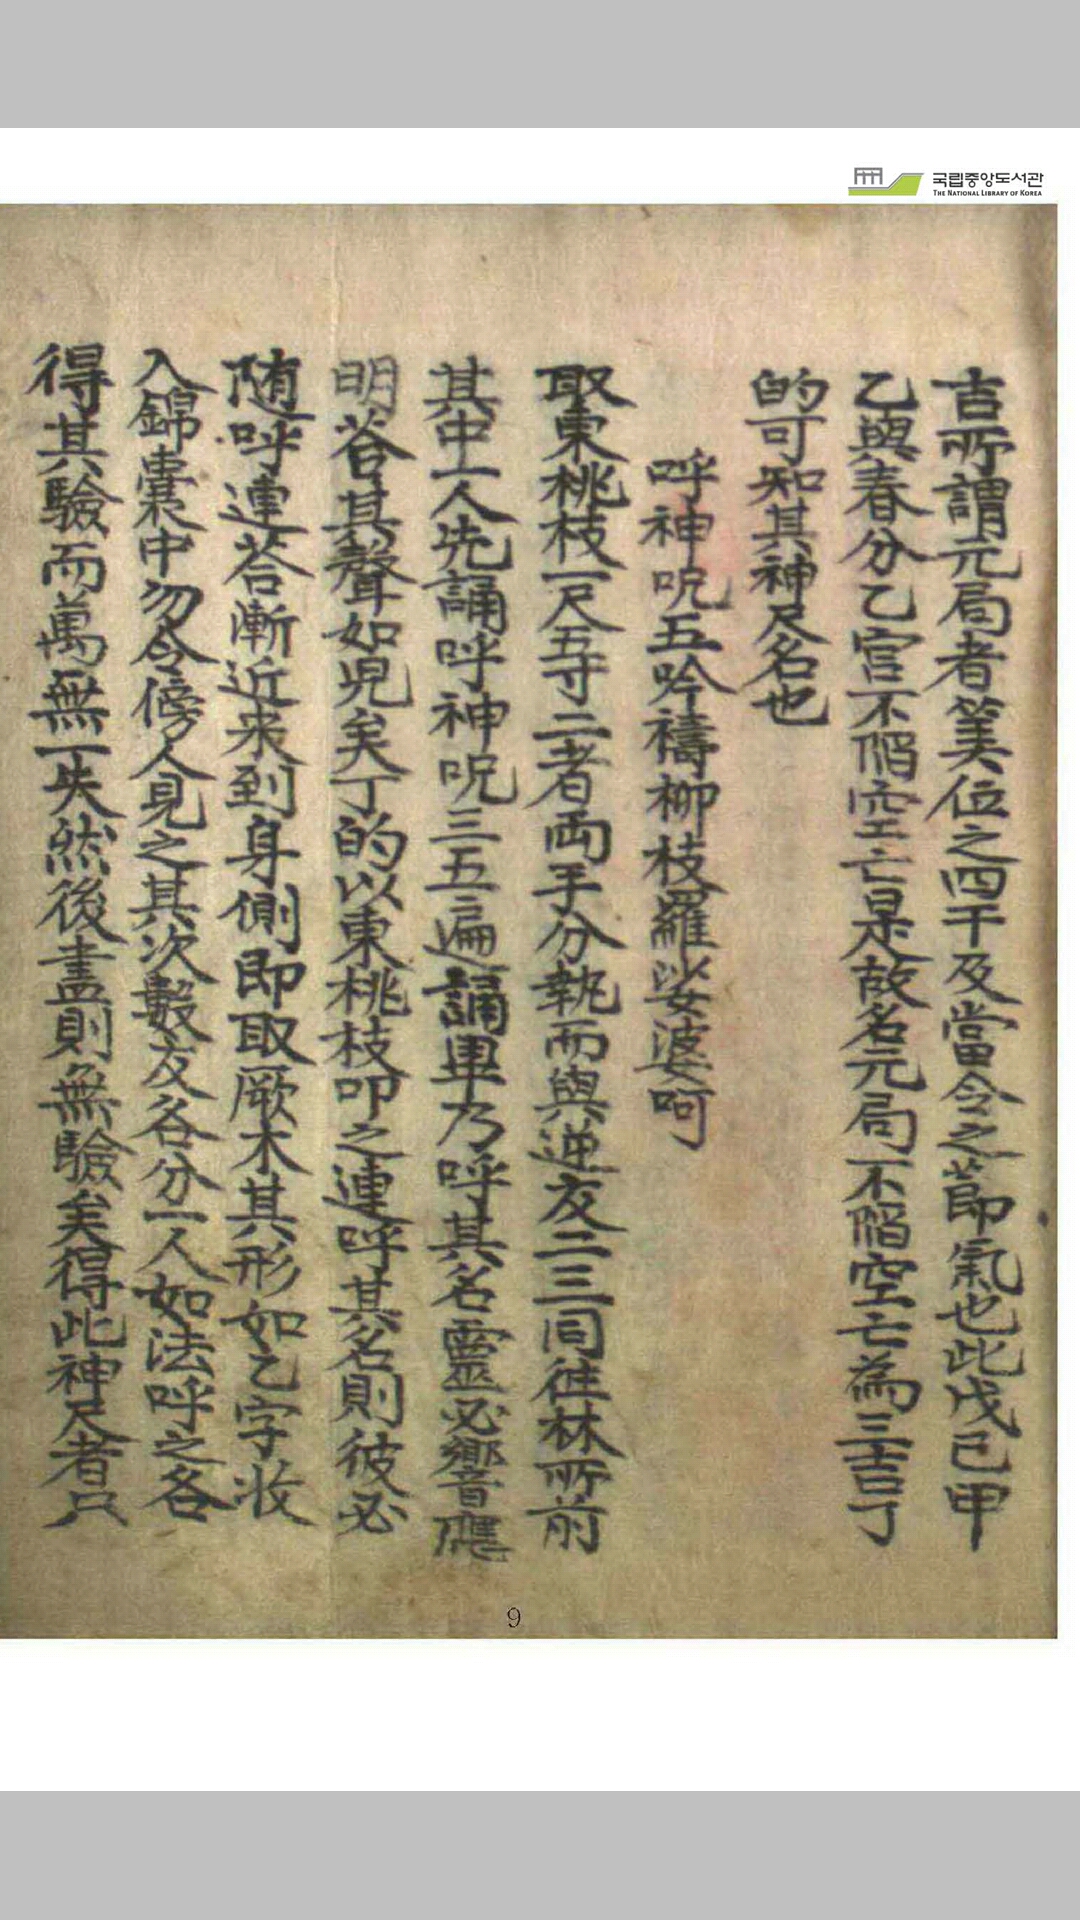 국립중앙도서관
THE NATIONAL LIBRARY OF KOREA
吉所謂元局者筭位之四干及當令之節氣也此戊己甲
乙與春分乙官不陷空亡是故名元局不陷空亡為三吉丁
的可知其神尺名也
呼神呪五吟禱柳枝羅娑婆呵
取東桃枝一尺五寸二者両手分執而與逆友二三同往林所前
其中一人先誦呼神呪三五遍誦畢乃呼其名靈必響應
明答其聲如児矣丁的以東桃枝叩之連呼其名則彼必
随呼連荅漸近来到身側即取厥木其形如乙字收
入錦囊中勿令傍人見之其次數友各分一人如法呼之各
得其驗而萬無一失然後盡則無驗矣得此神尺者只
9